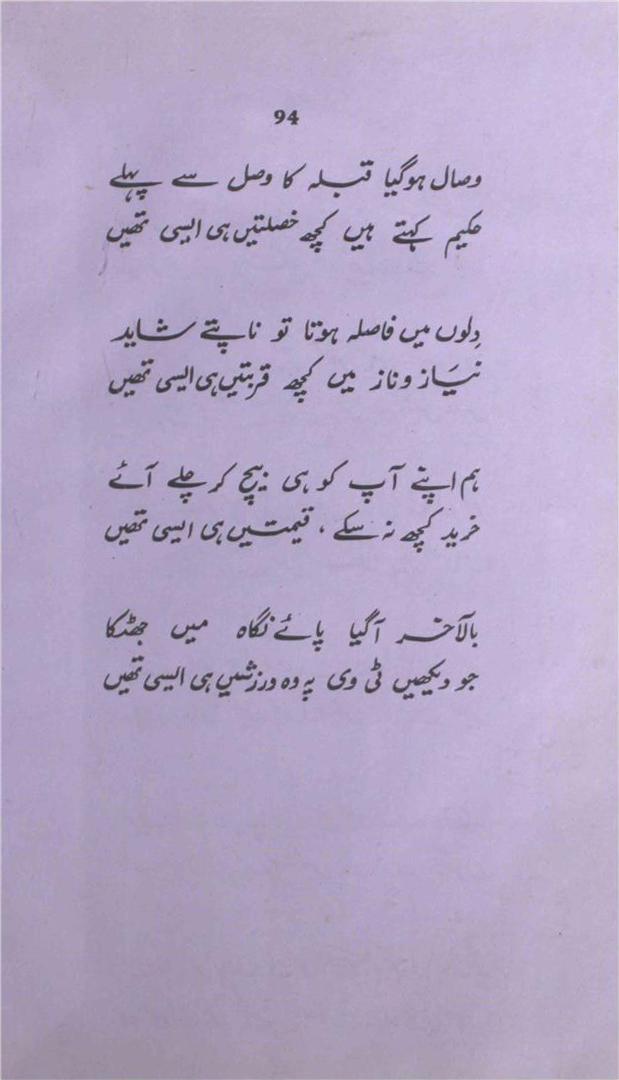 94
وصال ہوگیا قبلہ کا وصل سے پہلے
حکیم کہتے ہیں کچھ خصلتیں ہی ایسی تھیں
دِلوں میں فاصلہ ہوتا تو ناپتے شاید
نیَاز و ناز میں کچھ قربتیں ہی ایسی تھیں
ہم اپنے آپ کو ہی بیچ کر چلے آئے
خرید کچھ نہ سکے ، قیمتیں ہی ایسی تھیں
بالآخر آگیا پائے نگاہ میں جھٹکا
جو دیکھیں ٹی وی پہ وہ ورزشیں ہی ایسی تھیں